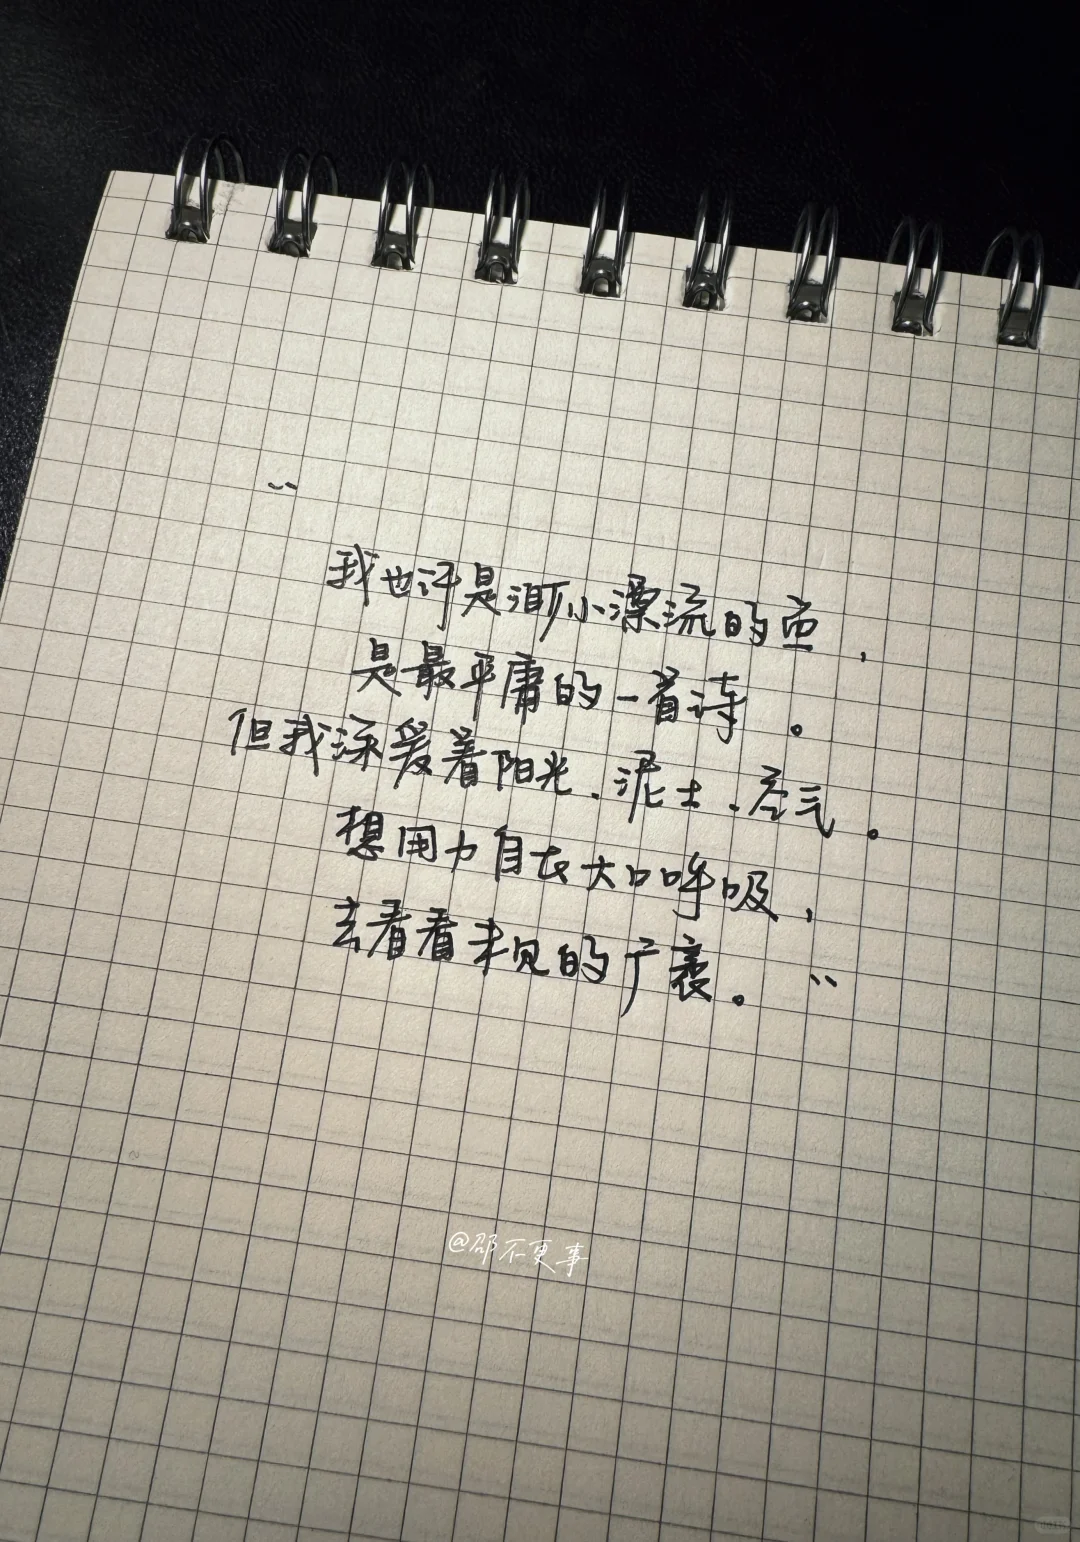 “
我也许是渺小漂流的鱼，
是最平庸的一首诗。
但我深爱着阳光、泥土、空气。
想用力自在大口呼吸，
去看看未见的广袤。”
@邵不更事